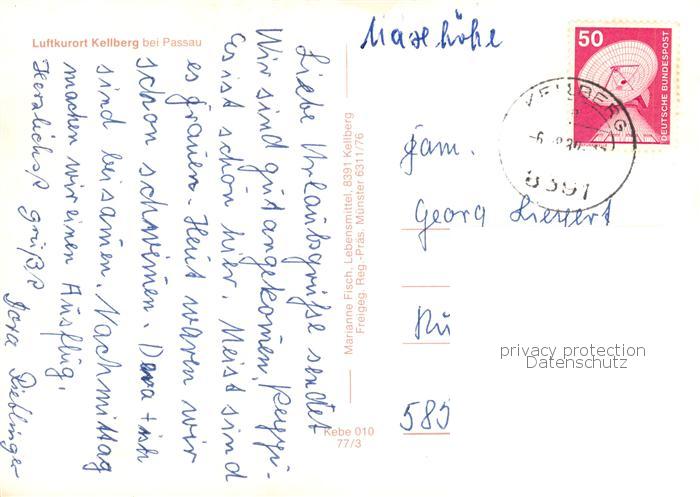 Luftkurort Kellberg bei Passau
Maxhöhe
50
DEUTSCHE BUNDESPOST
KELLBERG
8391
Liebe Urlaubsgrüße sendet
Wir sind gut angekomen,
Es ist schön hier. Meist sind
es Frauen. Heut waren wir
schon schwimen. Dora + ich
sind beisamen. Nachmittag
machen wir einen Ausflug.
Herzlichst Grüße
Dora
Marianne Fisch, Lebensmittel, 8391 Kellberg
Freigeg. Reg.-Präs. Münster 6311/76
Kebe 010
77/3
Fam.
Georg
585
privacy protection
Datenschutz